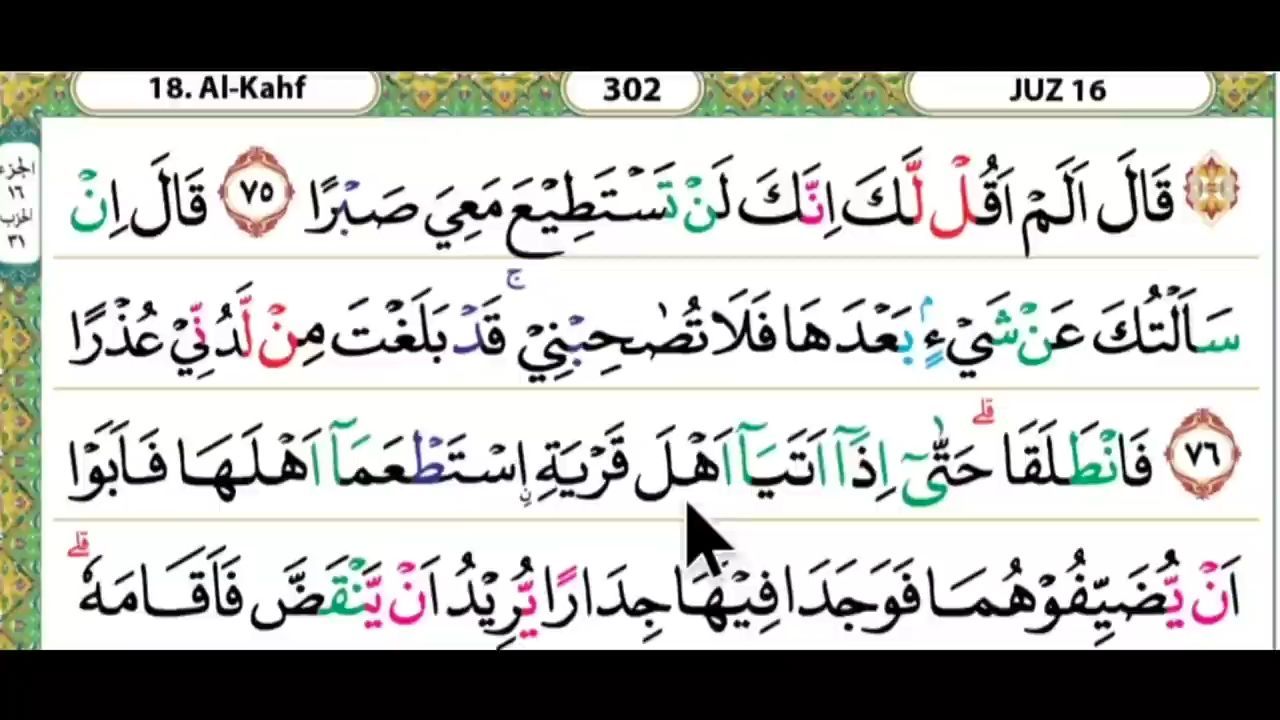 18. Al-Kahf
302
JUZ 16
الجزء
١٦
الحزب
٣١
قَالَ اَلَمْ اَقُلْ لَّكَ اِنَّكَ لَنْ تَسْتَطِيْعَ مَعِيَ صَبْرًا ٧٥ قَالَ اِنْ
سَاَلْتُكَ عَنْ شَيْءٍۢ بَعْدَهَا فَلَا تُصٰحِبْنِيْۚ قَدْ بَلَغْتَ مِنْ لَّدُنِّيْ عُذْرًا
٧٦ فَانْطَلَقَاۗ حَتّٰىٓ اِذَآ اَتَيَآ اَهْلَ قَرْيَةِ ِۨاسْتَطْعَمَآ اَهْلَهَا فَاَبَوْا
اَنْ يُّضَيِّفُوْهُمَا فَوَجَدَا فِيْهَا جِدَارًا يُّرِيْدُ اَنْ يَّنْقَضَّ فَاَقَامَهٗۗ